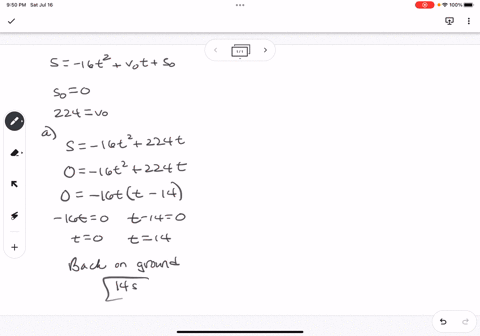 9:50 PM Sat Jul 16
100%
1/1
S = -16t² + v₀t + s₀
s₀ = 0
224 = v₀
a)
S = -16t² + 224t
0 = -16t² + 224t
0 = -16t(t - 14)
-16t = 0 t - 14 = 0
t = 0 t = 14
Back on ground
14 s